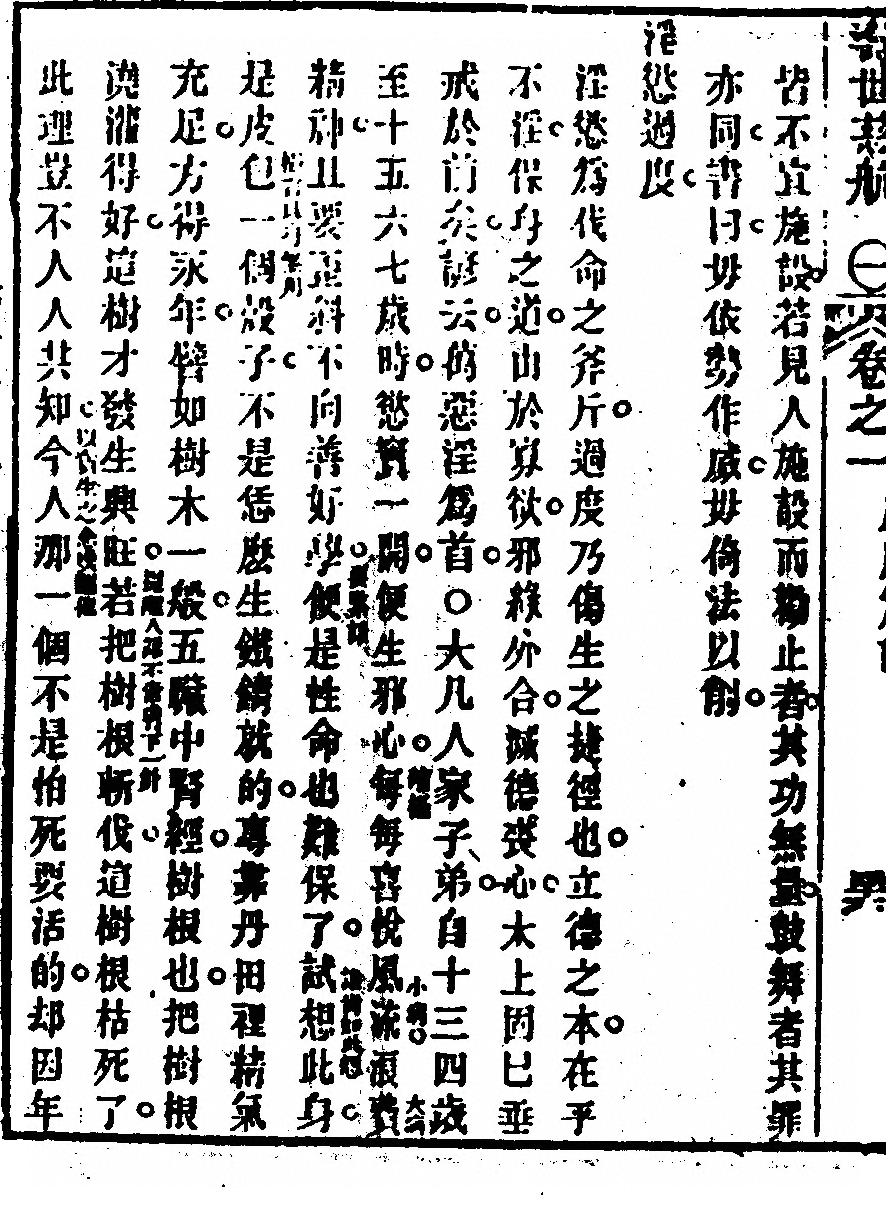 世慈航 卷之一
皆不宜施設若見人施設而勸止者其功無量鼓舞者其罪
亦同書曰毋依勢作威毋倚法以削
淫慾過度
淫慾爲伐命之斧斤過度乃傷生之捷徑也立德之本在乎
不淫保身之道由於寡欲邪緣外合滅德喪心太上固已垂
戒於前矣諺云萬惡淫爲首○大凡人家子弟自十三四歲
至十五六七歲時慾竇一開便生邪心每每喜悅風流浪費
精神且要歪斜不向善好學便是性命也難保了試想此身
是皮包一個殼子不是恁麽生鐵鑄就的專靠丹田裡精氣
充足方得永年譬如樹木一般五臟中腎經樹根也把樹根
澆灌得好這樹才發生興旺若把樹根斬伐這樹根枯死了
此理豈不人人共知今人那一個不是怕死要活的却因年